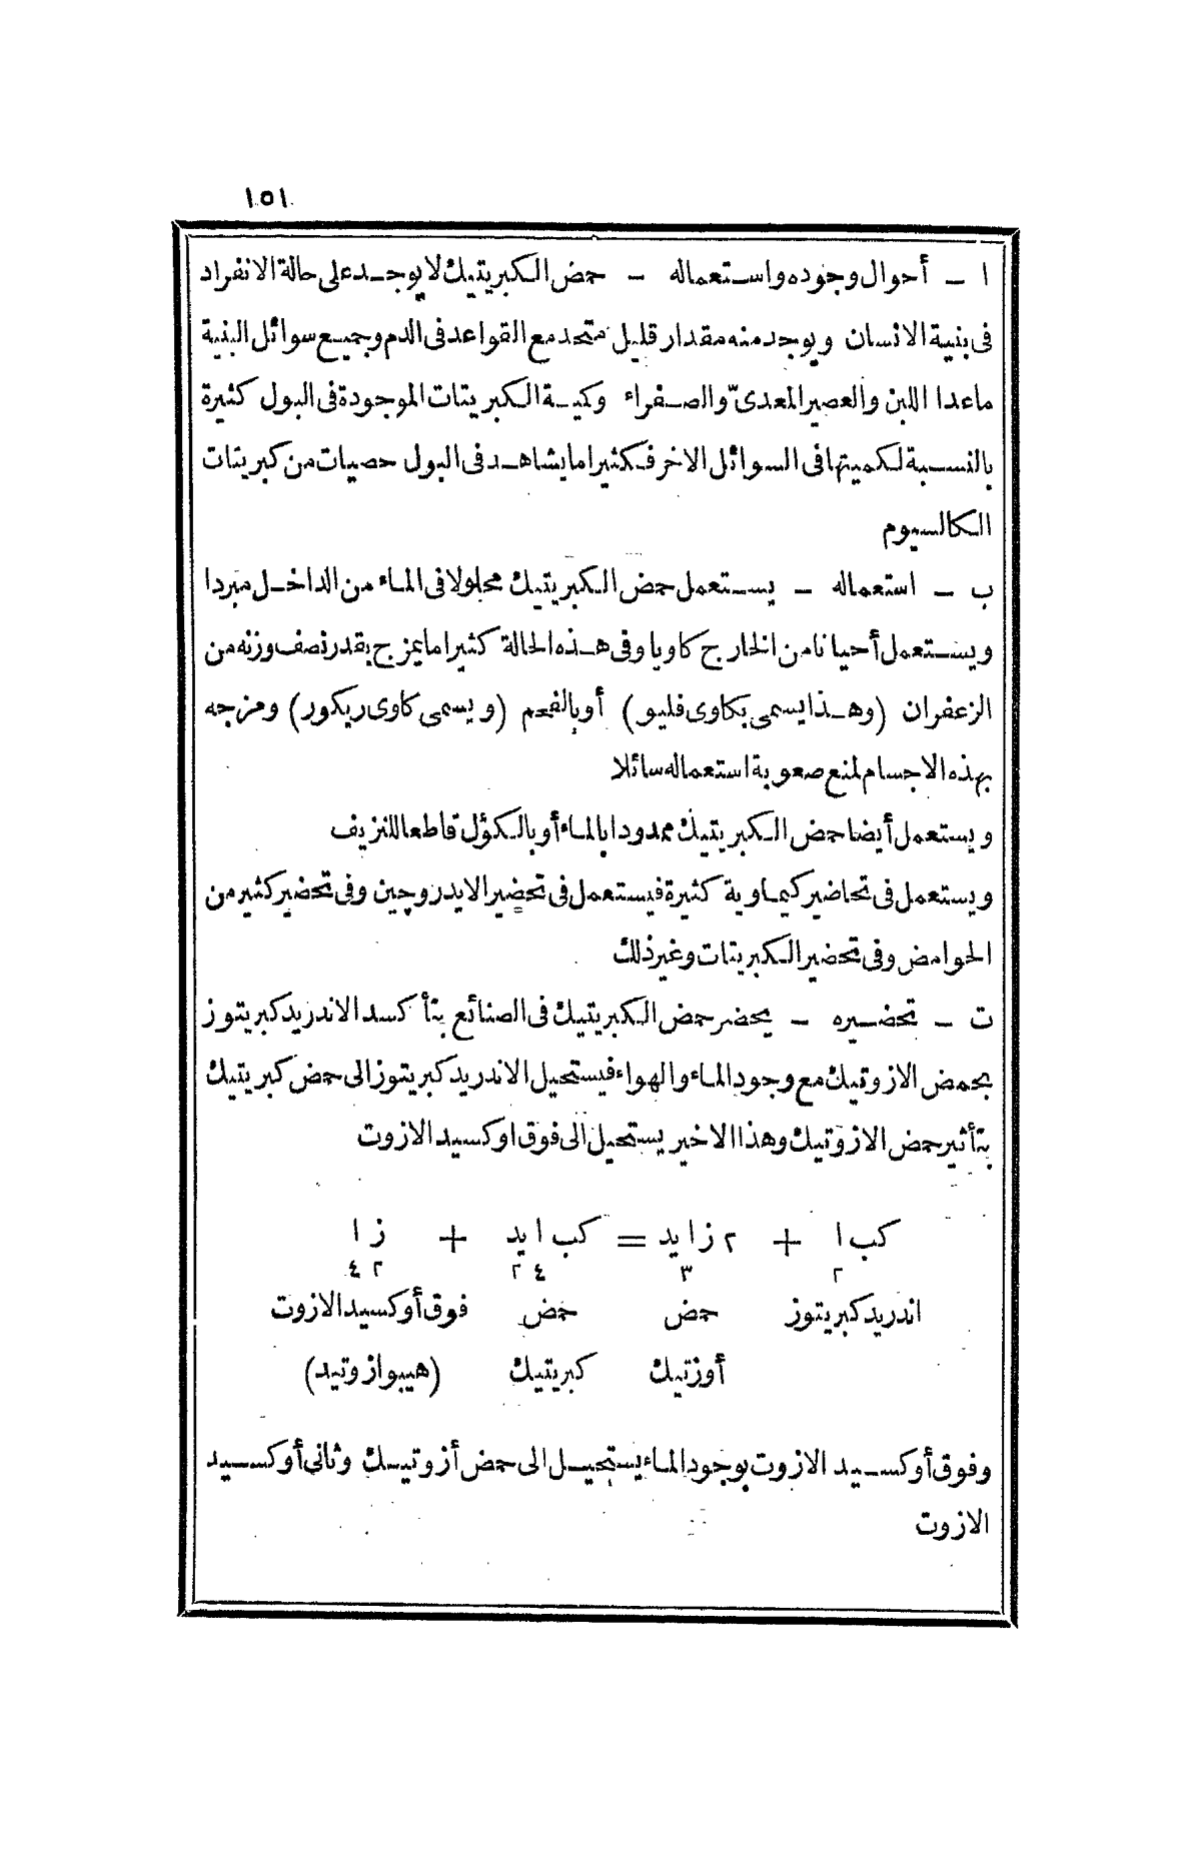 ١٥١
ا ـ أحوال وجوده واستعماله ـ حمض الكبريتيك لا يوجد على حالة الانفراد
فى بنية الانسان ويوجد منه مقدار قليل متحد مع القواعد فى الدم وجميع سوائل البنية
ماعدا اللبن والعصير المعدىّ والصفراء وكمية الكبريتات الموجودة فى البول كثيرة
بالنسبة لكميتها فى السوائل الاخر فكثيرا ما يشاهد فى البول حصيات من كبريتات
الكالسيوم
ب ـ استعماله ـ يستعمل حمض الكبريتيك محلولا فى الماء من الداخل مبردا
ويستعمل أحيانا من الخارج كاويا وفى هذه الحالة كثيرا ما يمزج بقدر نصف وزنه من
الزعفران (وهذا يسمى بكاوى فليو) أو بالفحم (ويسمى كاوى ريكور) ومزجه
بهذه الاجسام لمنع صعوبة استعماله سائلا
ويستعمل أيضا حمض الكبريتيك ممدودا بالماء أو بالكؤل قاطعا للنزيف
ويستعمل فى تحاضير كيماوية كثيرة فيستعمل فى تحضير الايدروجين وفى تحضير كثير من
الحوامض وفى تحضير الكبريتات وغير ذلك
ت ـ تحضيره ـ يحضر حمض الكبريتيك فى الصنائع بتأكسد الاندريد كبريتوز
بحمض الازوتيك مع وجود الماء والهواء فيستحيل الاندريد كبريتوز الى حمض كبريتيك
بتأثير حمض الازوتيك وهذا الاخير يستحيل الى فوق اوكسيد الازوت
كب ا + ٢ ز ا يد = كب ا يد + ز ا
٢ ٣ ٤ ٢ ٢ ٤
اندريد كبريتوز حمض حمض فوق أوكسيد الازوت
أوزتيك كبريتيك (هيبوازوتيد)
وفوق أوكسيد الازوت بوجود الماء يستحيل الى حمض أزوتيك وثانى أوكسيد
الازوت